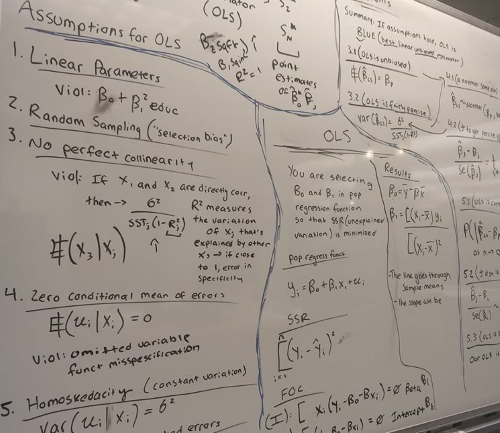 Assumptions for OLS
1. Linear Parameters
Viol: β₀ + β₁² educ
2. Random Sampling ("selection bias")
3. No perfect collinearity
Viol: If X₁ and X₂ are directly corr,
then → 6²
SSTⱼ(1-Rⱼ²)
R² measures
the variation
of Xⱼ that's
explained by other
x's → if close
to 1, error in
E(X₃|Xᵢ)
4. Zero conditional mean of errors
E(uᵢ|Xᵢ) = 0
Viol: omitted variable
funct misspecification
5. Homoskedacity (constant variation)
Var(uᵢ|Xᵢ) = 6²
errors
(OLS)
B₂ sqft
R² =
point
estimates
of β̂₀ β̂₂
OLS
You are selecting
B₀ and B₁ in pop
regression function
so that SSR (unexplained
variation) is minimized
Pop regress funct
yᵢ = B₀ + B₁xᵢ + uᵢ
SSR
(yᵢ - ŷᵢ)²
i=1
FOC
(I): [ xᵢ(yᵢ - B₀ - Bxᵢ) = 0 Beta B₁
= 0 Intercept B₀
Results
β₀ = ȳ - βx̄
β₁ = [(xᵢ - x̄)yᵢ
[(xᵢ - x̄)²
- The line goes through
sample means
- The slope will be
Summary: If assumptions hold, OLS is
BLUE (best linear unbiased estimator)
3.1 (OLS is unbiased)
3.2
var(
SSTⱼ(1-R
β̂ⱼ - βⱼ
se(β̂ⱼ)
5.1 (OLS is
as n →
5.2
β̂ⱼ - βⱼ
se(β̂ⱼ)
5.3 (OLS
Our OLS